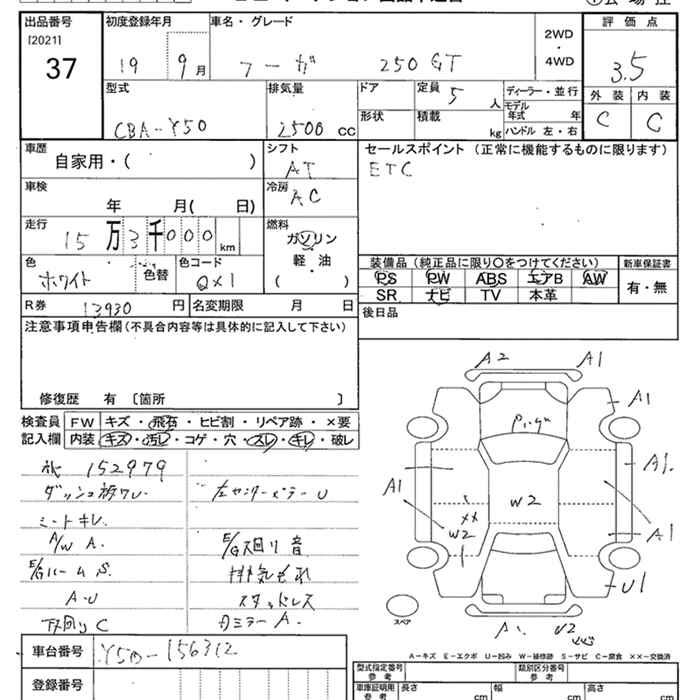 出品番号 初度登録年月 車名・グレード 2WD・4WD 評価点
[2021]
37 19 9月 フーガ 250GT 3.5
外装 内装
C C
型式 排気量 ドア 定員 5人 ディーラー・並行
形状 積載 kg モデル年式 年
ハンドル 左・右
CBA-Y50 2500cc
車歴 シフト セールスポイント(正常に機能するものに限ります)
自家用・( ) AT ETC
車検 冷房
年 月( 日) AC
走行 燃料
15万3千000km ガソリン
軽・油
( )
色 色替 色コード
ホワイト QX1
装備品(純正品に限り○をつけてください) 新車保証書
PS PW ABS エアB AW 有・無
SR ナビ TV 本革
R券 13930円 名変期限 月 日 後日品
注意事項申告欄(不具合内容等は具体的に記入して下さい)
修復歴 有 〔箇所 〕
検査員 FW キズ・飛石・ヒビ割・リペア跡・×要
記入欄 内装 キズ・汚レ・コゲ・穴・スレ・キレ・破レ
152979
シートキレ
A/W A.
E/G回り音
E/GルームS.
排気もれ
A・U
スタッドレス
下回りC
ミラーA.
車台番号 Y50-156312
登録番号
A2 A1
A1
A1 A1.
W2
××
W2
A1
U1
スペア
A1 U2
A-キズ E-エクボ U-凹み W-補修跡 S-サビ C-腐食 ××-交換済
型式指定番号 参考 類別区分番号 参考
車庫証明用 参考 長さ cm 幅 cm 高さ cm